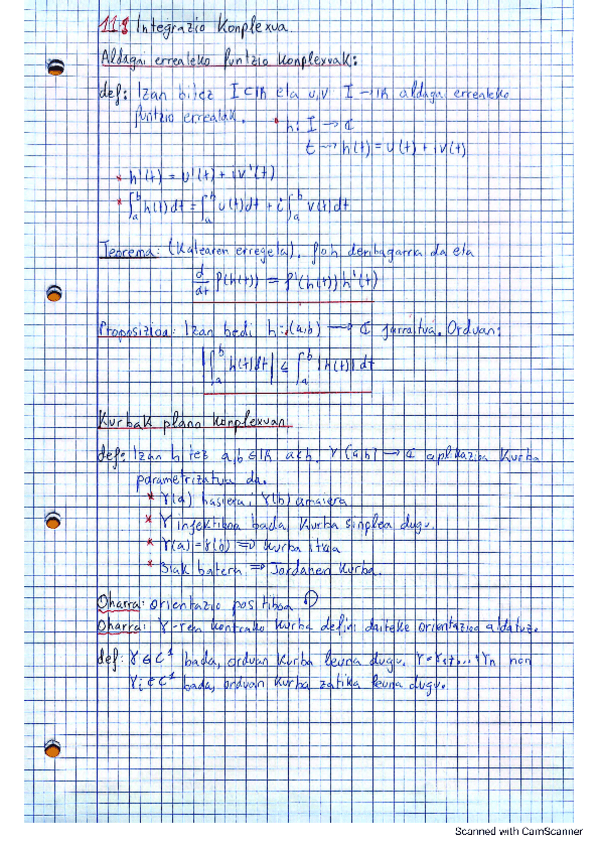 11.8 Integrazio Konplexua.
Aldagai errealeko funtzio konplexuak:
def: Izan bitez I⊂ℝ eta u,v I→ℝ aldagai errealeko
funtzio errealak. * h: I → ℂ
t ⇝ h(t) = u(t) + i v(t)
* h'(t) = u'(t) + i v'(t)
* ∫_a^b h(t) dt = ∫_a^b u(t) dt + i ∫_a^b v(t) dt
Teorema: (Katearen erregela). f∘h deribagarria da eta
d/dt f(h(t)) = f'(h(t)) h'(t)
Proposizioa: Izan bedi h: (a,b) → ℂ jarraitua. Orduan:
|∫_a^b h(t) dt| ≤ ∫_a^b |h(t)| dt
Kurbak plano konplexuan
def: Izan bitez a,b ∈ ℝ a<b. γ [a,b] → ℂ aplikazioa kurba
parametrizatua da.
* γ(a) hasiera, γ(b) amaiera
* γ injektiboa bada kurba sinplea dugu.
* γ(a) = γ(b) ⇒ kurba itxia
* Biak batera ⇒ Jordanen kurba.
Oharra: orientazio positiboa ↺
Oharra: γ-ren kontrako kurba defini daiteke orientazioa aldatuz.
def: γ ∈ C¹ bada, orduan kurba leuna dugu. γ = γ₁+...+γn non
γi ∈ C¹ bada, orduan kurba zatika leuna dugu.
Scanned with CamScanner